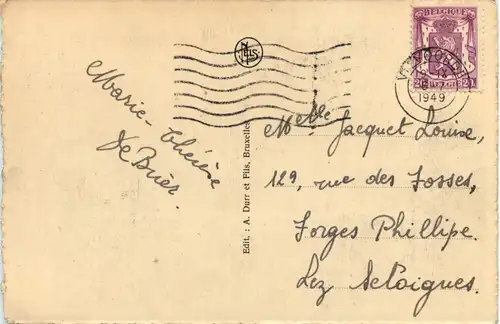 Marie-Thérèse
De Buër.
NELS
Edit. : A. Durr et Fils, Bruxelles
BELGIQUE
BELGIE
1949
Melle Jacquet Louise,
129, rue des Fosses,
Forges Phillipe.
Lez Seloignes.